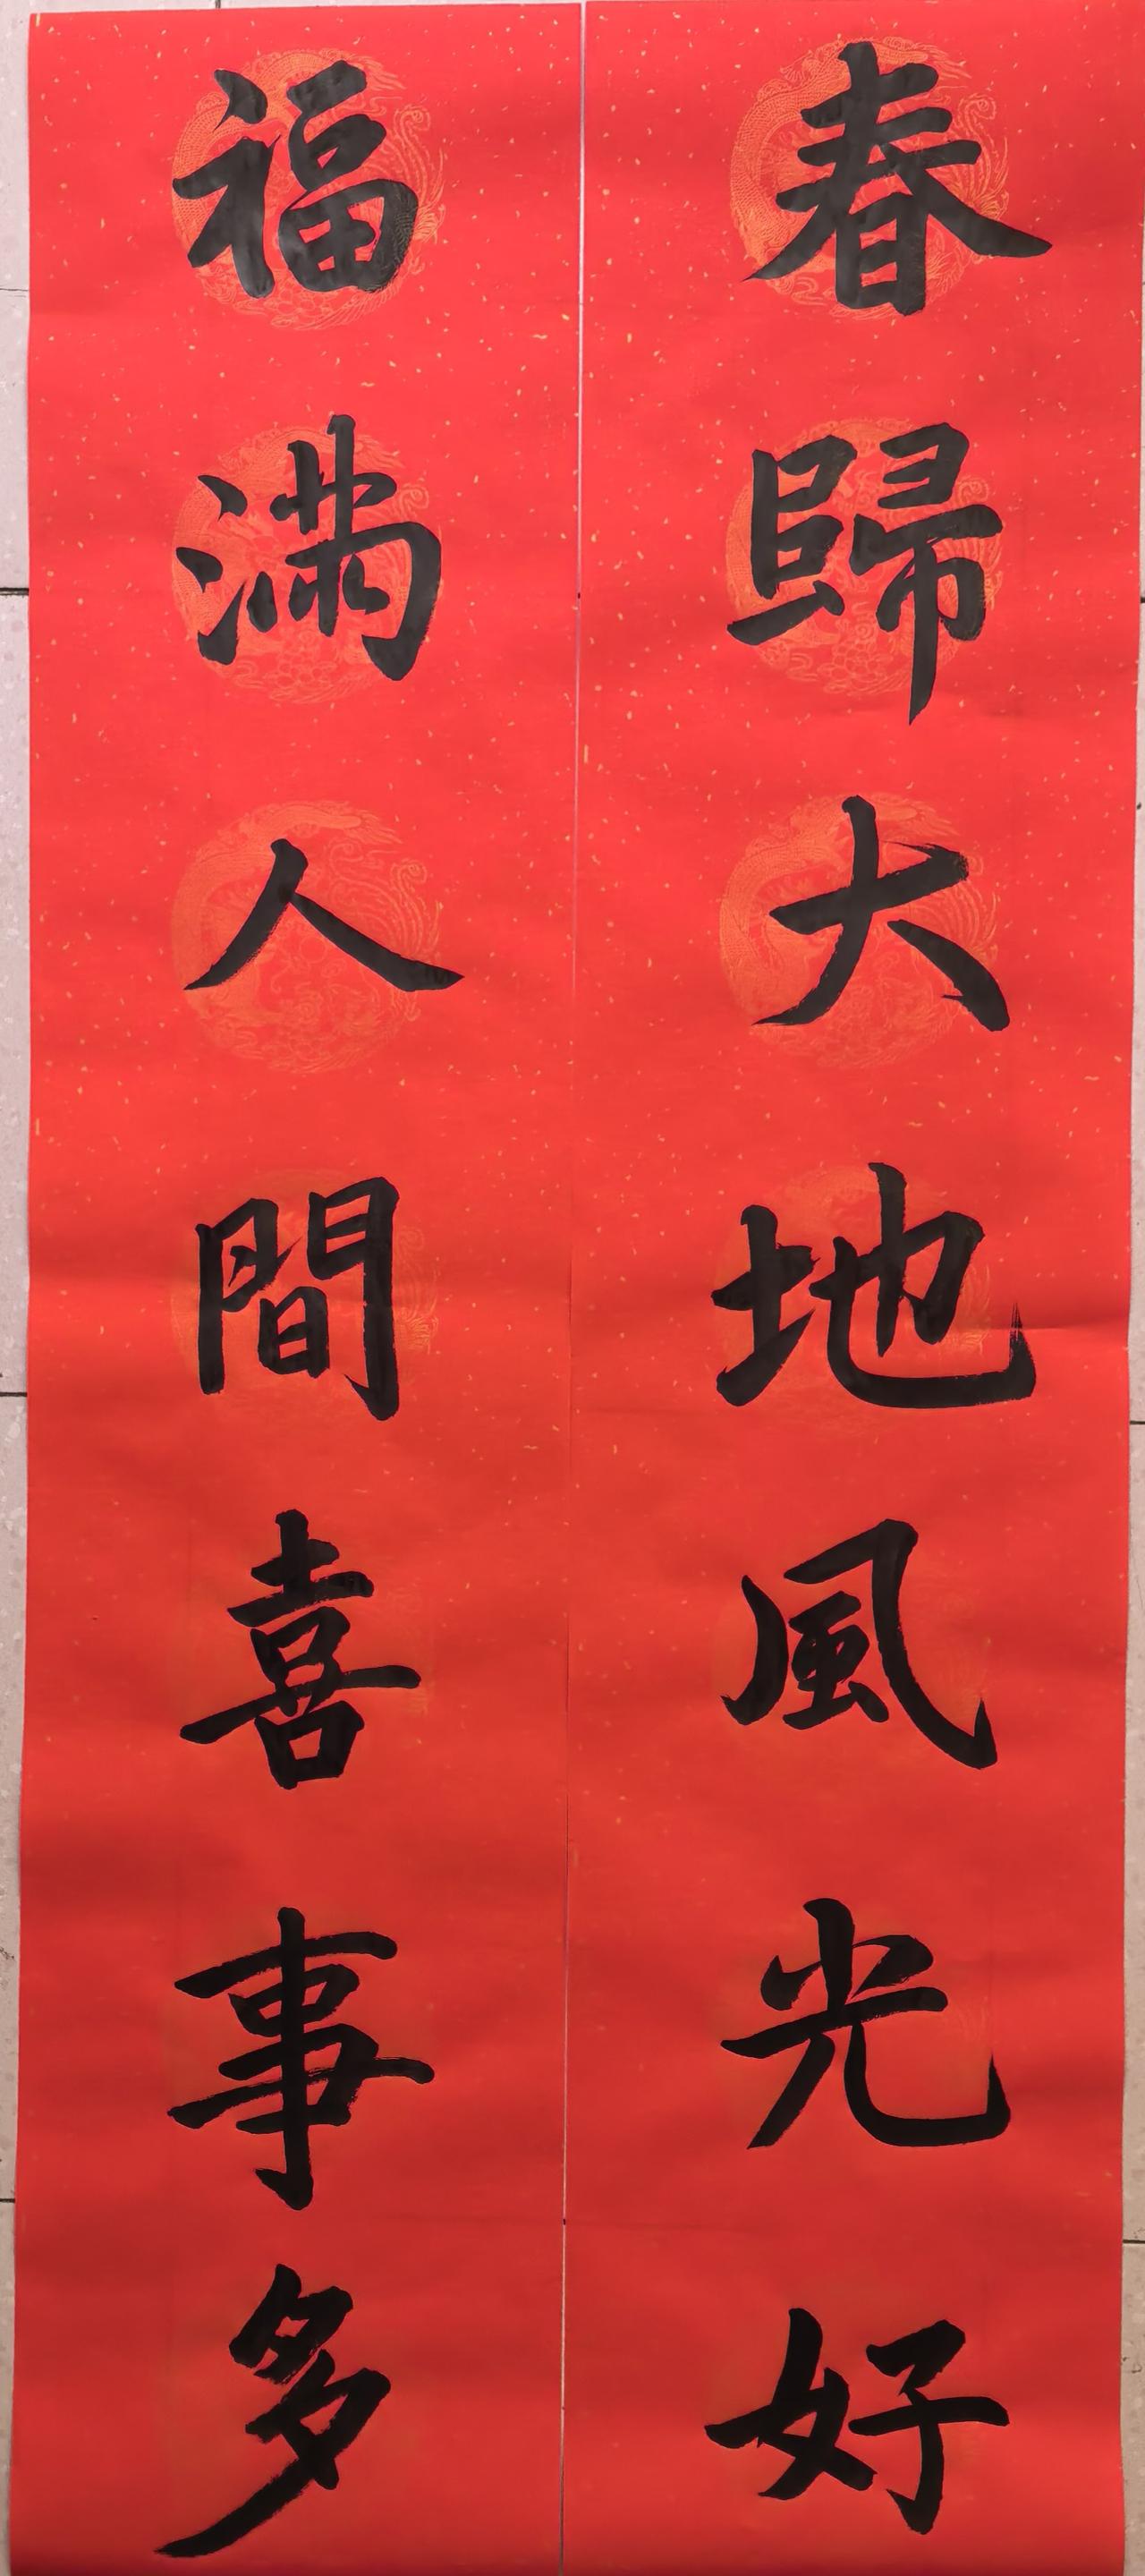 春歸大地風光好
福滿人間喜事多